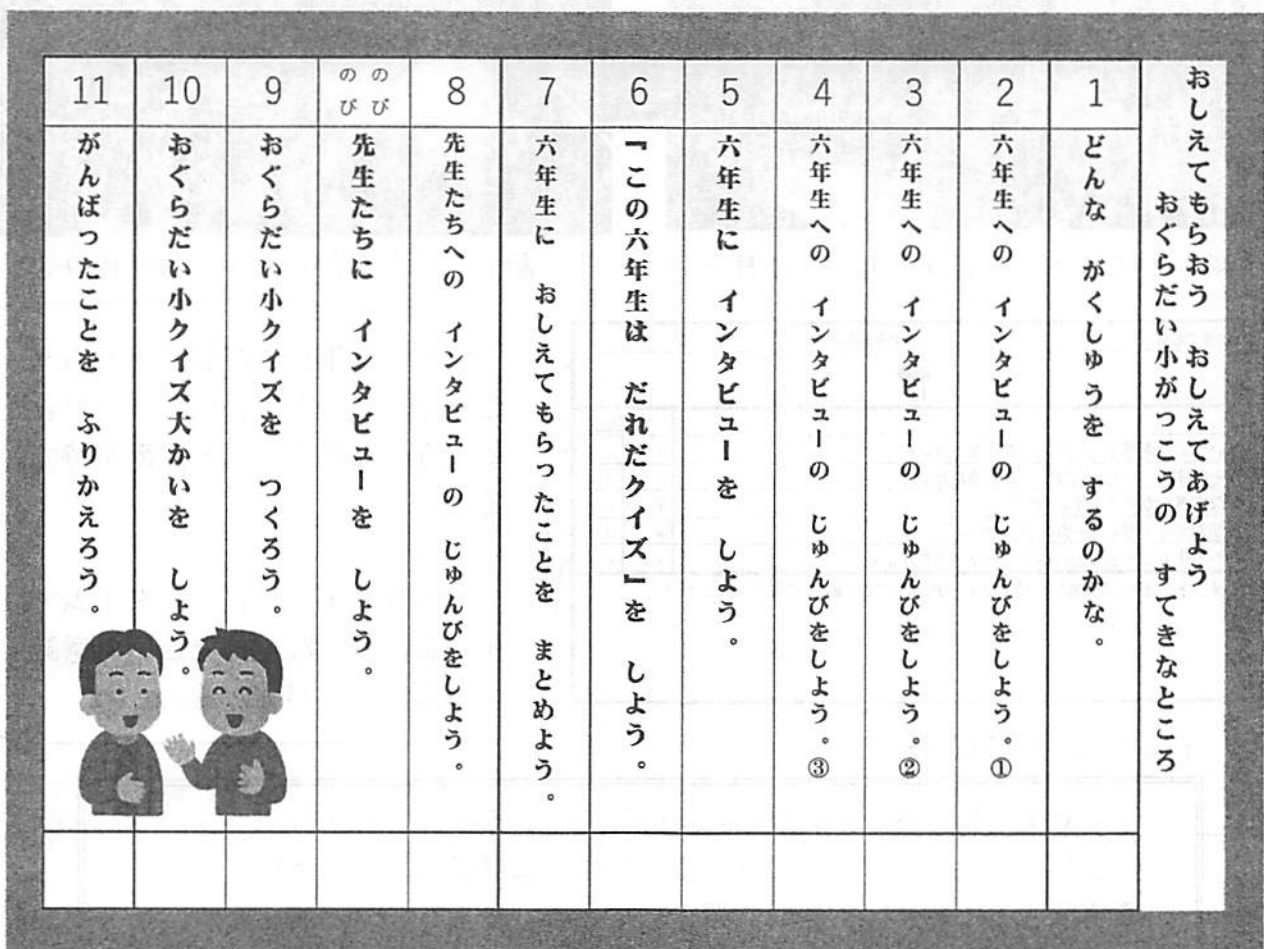 おしえてもらおう　おしえてあげよう
おぐらだい小がっこうの　すてきなところ
1 どんな　がくしゅうを　するのかな。
2 六年生への　インタビューの　じゅんびをしよう。①
3 六年生への　インタビューの　じゅんびをしよう。②
4 六年生への　インタビューの　じゅんびをしよう。③
5 六年生に　インタビューを　しよう。
6 『この六年生は　だれだクイズ』を　しよう。
7 六年生に　おしえてもらったことを　まとめよう。
8 先生たちへの　インタビューの　じゅんびをしよう。
のびのび 先生たちに　インタビューを　しよう。
9 おぐらだい小クイズを　つくろう。
10 おぐらだい小クイズ大かいを　しよう。
11 がんばったことを　ふりかえろう。